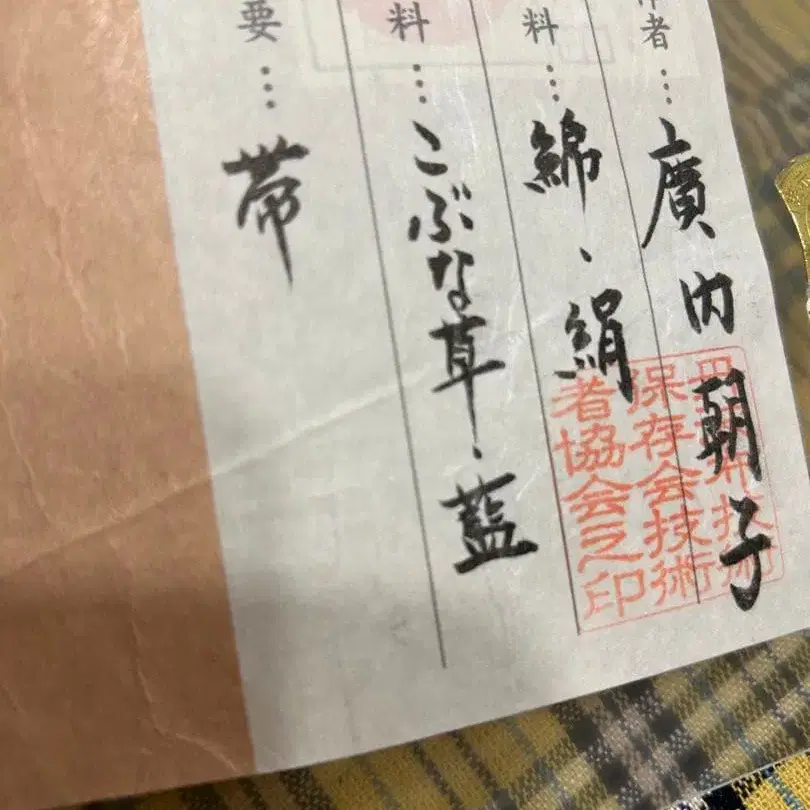 者…廣内朝子
料…綿、絹
料…こぶな草、藍
要…帯
保存会技術
者協会之印